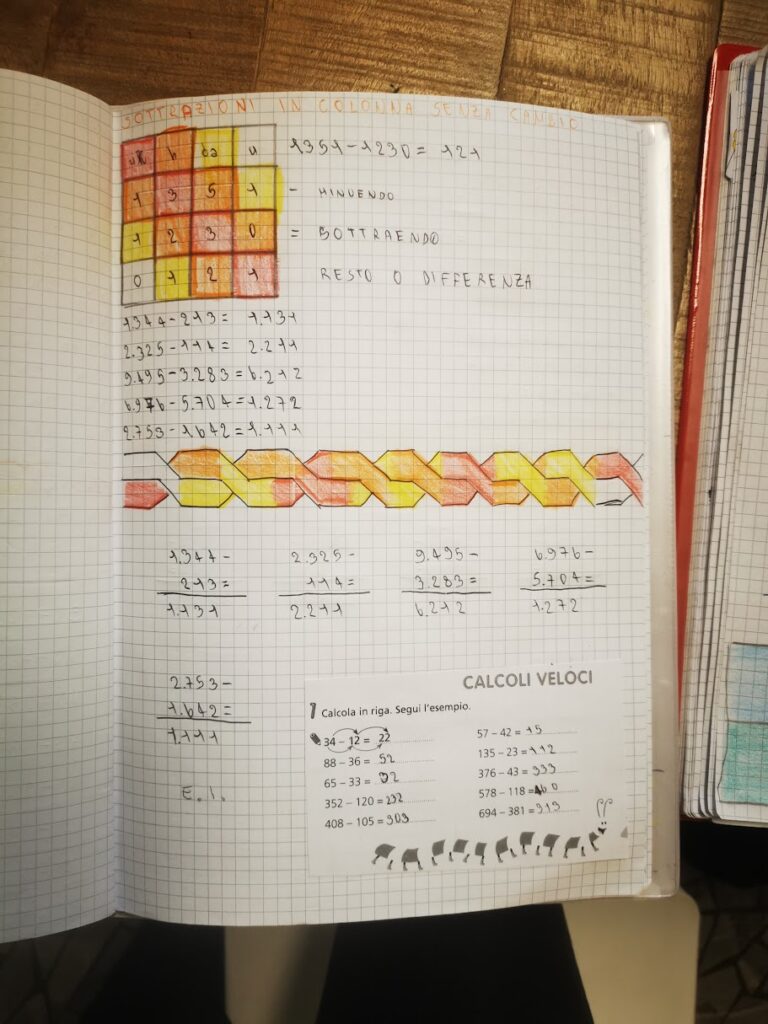 SOTTRAZIONI IN COLONNA SENZA CAMBIO
uk h da u 1351-1230= 121
1 3 5 1 - MINUENDO
1 2 3 0 = SOTTRAENDO
0 1 2 1 RESTO O DIFFERENZA
1344-213= 1.131
2.325-114= 2.211
9.495-3.283=6.212
6.976-5.704=1.272
2.753-1642=1.111
1.344- 2.325- 9.495- 6.976-
213= 114= 3.283= 5.704=
1.131 2.211 6.212 1.272
2.753-
1.642=
1.111
E.I.
CALCOLI VELOCI
1 Calcola in riga. Segui l'esempio.
34 – 12 = 22
88 – 36 = 52
65 – 33 = 32
352 – 120 = 232
408 – 105 = 303
57 – 42 = 15
135 – 23 = 112
376 – 43 = 333
578 – 118 = 460
694 – 381 = 313